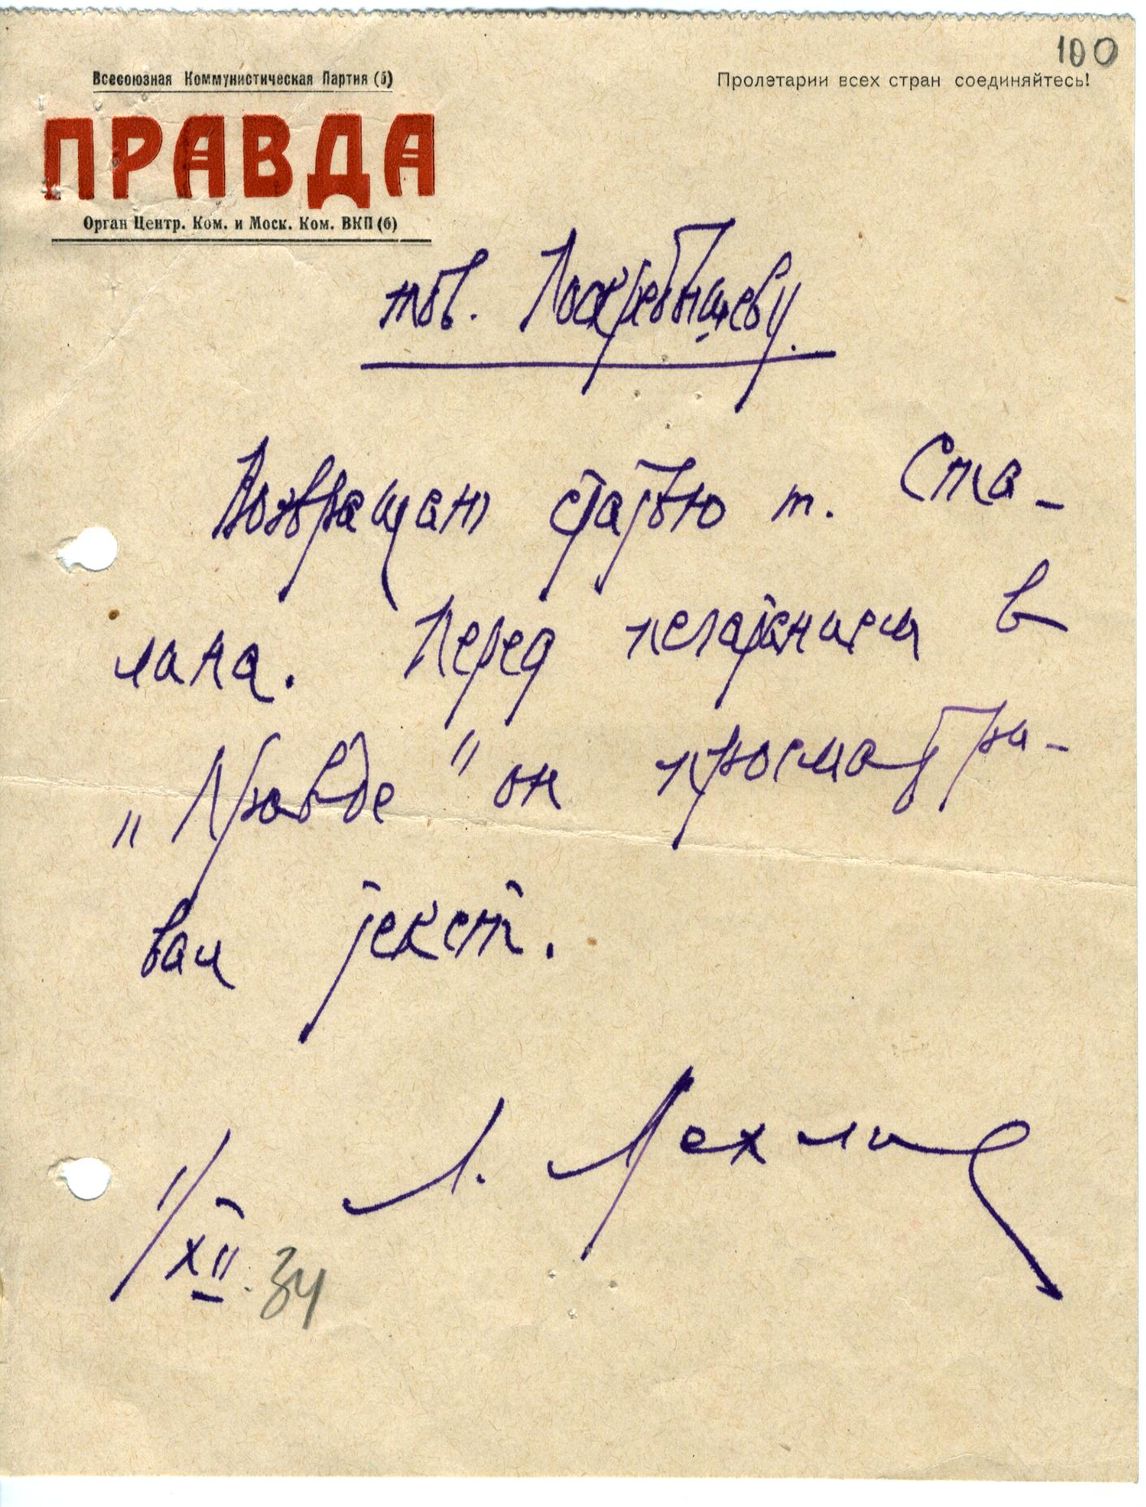 100
Всесоюзная Коммунистическая Партия (б)
Пролетарии всех стран соединяйтесь!
ПРАВДА
Орган Центр. Ком. и Моск. Ком. ВКП (б)
тов. Поскребышеву.
Возвращаю статью т. Ста-
лина. Перед печатанием в
„Правде" он просматри-
вал текст.
Л. Мехлис
1/XII. 34